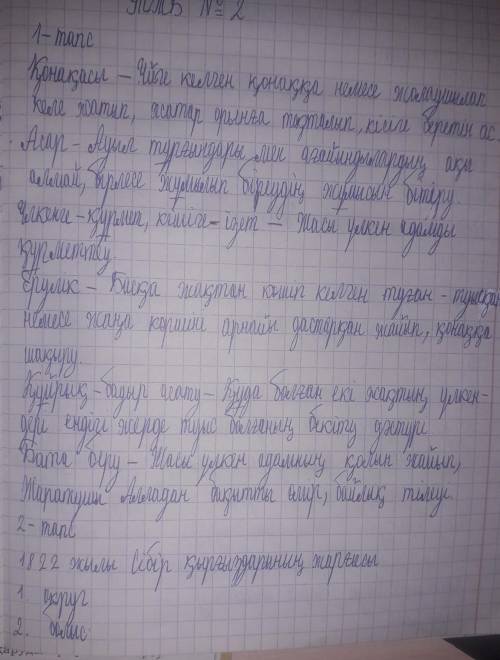 ТЖБ № 2
1-тапс
Қонақасы – Үйге келген қонаққа немесе жолаушылап
келе жатып, жатар орынға тоқталып, кісіге беретін ас
Асар – Ауыл тұрғындары мен ағайындылардың ақы
алмай, бірлесе жұмылып біреудің жұмысын бітіру.
Үлкенге – құрмет, кішіге – ізет – Жасы үлкен адамды
құрметтеу.
Ерулік – Басқа жақтан көшіп келген туған -
немесе жаңа көршіге арнайы дасторқан жайып, қонаққа
шақыру.
Құйрық-бауыр асату – Құда болған екі жақтың үлкен-
дері ендігі жерде туыс болғанын бекіту дәстүрі
Бата беру – Жасы үлкен адамның қолын жайып,
Жаратушы Алладан бақытты өмір, байлық тілеуі.
2-тапс
1822 жылы Сібір қырғыздарының жарғысы
1. округ
2. болыс